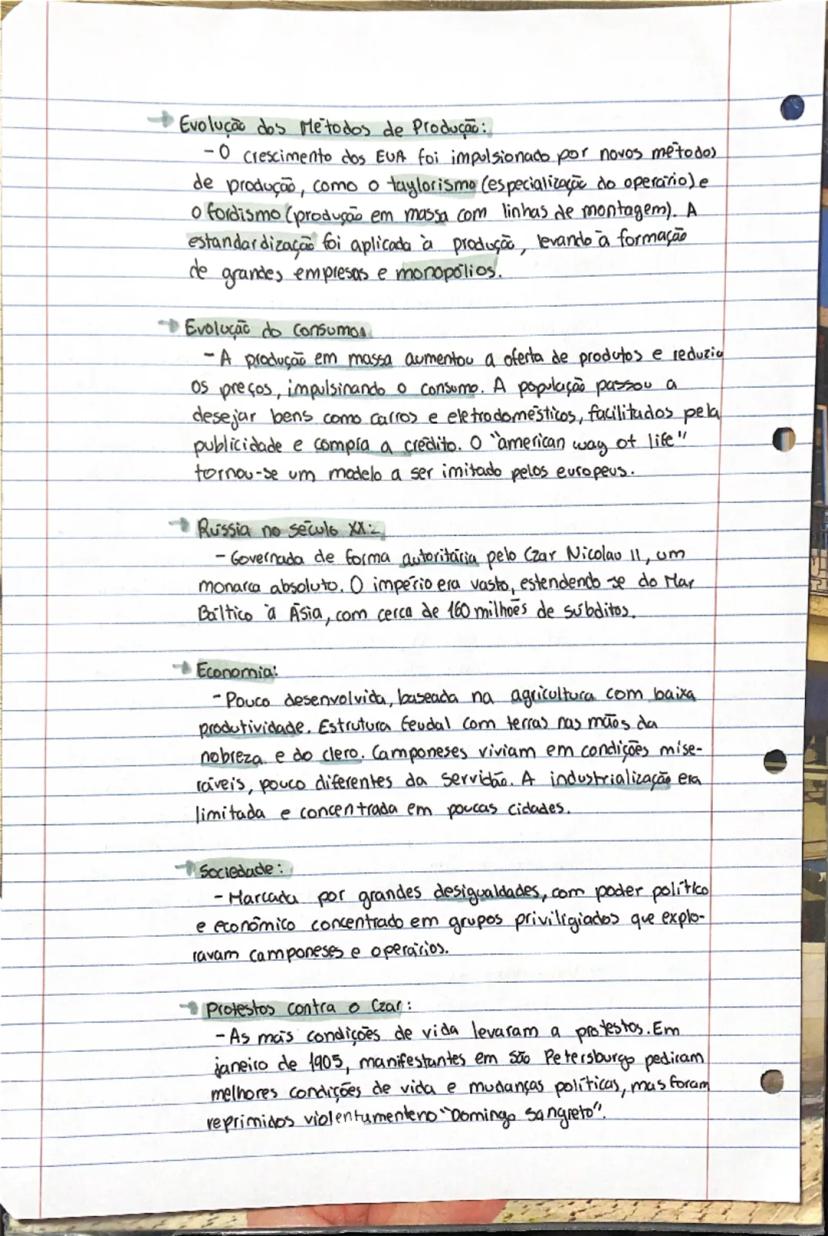 → Evolução dos Métodos de Produção:
- O crescimento dos EUA foi impulsionado por novos métodos
de produção, como o taylorismo (especialização do operário) e
o fordismo (produção em massa com linhas de montagem). A
estandardização foi aplicada à produção, levando à formação
de grandes empresas e monopólios.
→ Evolução do Consumo:
- A produção em massa aumentou a oferta de produtos e reduziu
os preços, impulsinando o consumo. A população passou a
desejar bens como carros e eletrodomésticos, facilitados pela
publicidade e compra a crédito. O "american way of life"
tornou-se um modelo a ser imitado pelos europeus.
→ Rússia no século XX:
- Governada de forma autoritária pelo Czar Nicolau II, um
monarca absoluto. O império era vasto, estendendo-se do Mar
Báltico à Ásia, com cerca de 160 milhões de súbditos.
→ Economia:
- Pouco desenvolvida, baseada na agricultura com baixa
produtividade. Estrutura feudal com terras nas mãos da
nobreza e do clero. Camponeses viviam em condições mise-
ráveis, pouco diferentes da servidão. A industrialização era
limitada e concentrada em poucas cidades.
→ Sociedade:
- Marcada por grandes desigualdades, com poder político
e econômico concentrado em grupos priviligiados que explo-
ravam camponeses e operários.
→ Protestos contra o Czar:
- As más condições de vida levaram a protestos. Em
janeiro de 1905, manifestantes em São Petersburgo pediram
melhores condições de vida e mudanças políticas, mas foram
reprimidos violentamente no "Domingo Sangreto".